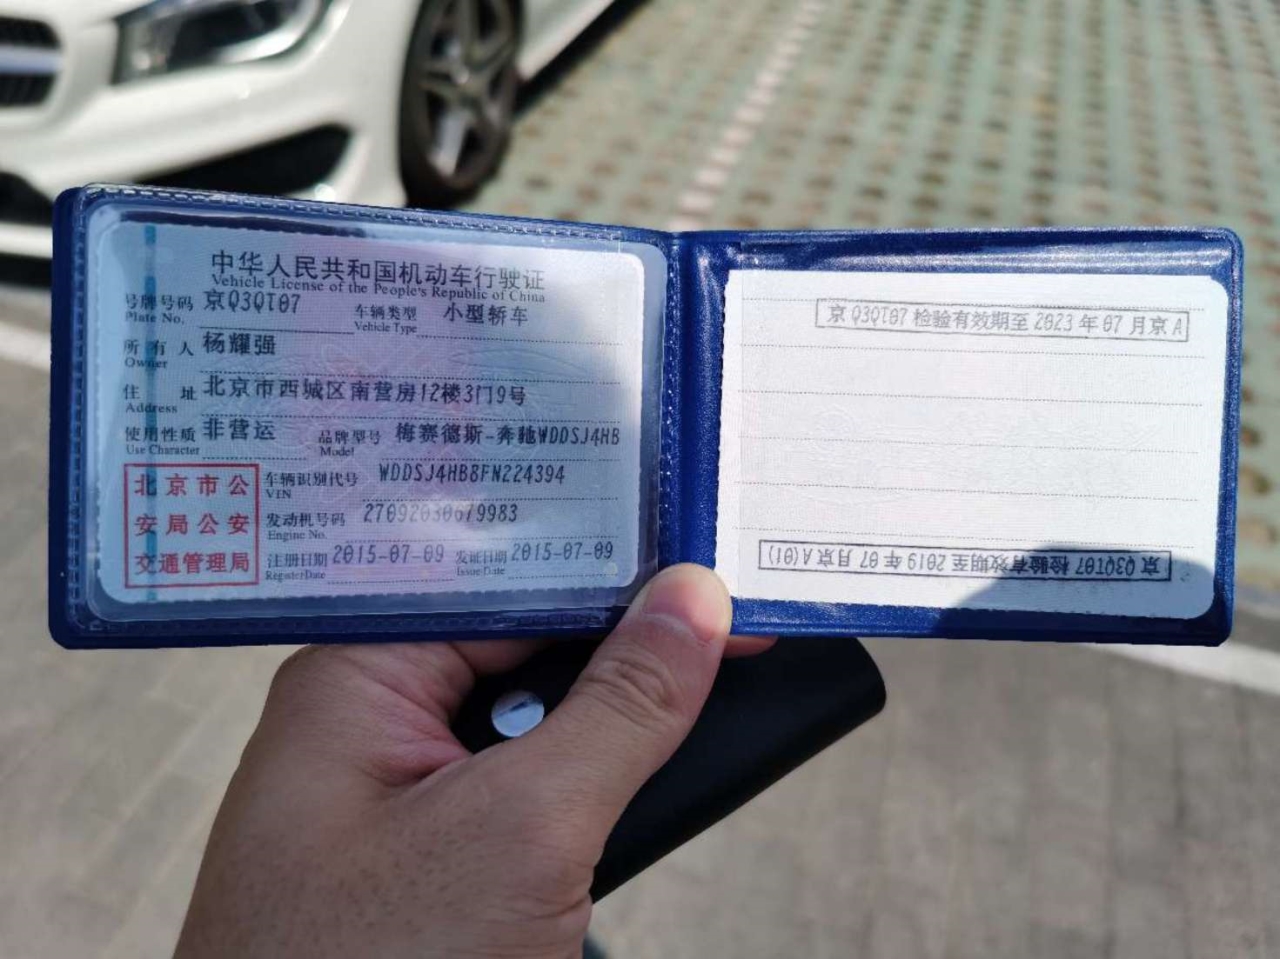 中华人民共和国机动车行驶证
Vehicle License of the People's Republic of China
号牌号码 京Q3QT07 车辆类型 小型轿车
Plate No. Vehicle Type
所有人 杨耀强
Owner
住址 北京市西城区南营房12楼3门9号
Address
使用性质 非营运 品牌型号 梅赛德斯-奔驰WDDSJ4HB
Use Character Model
北京市公
安局公安
交通管理局
车辆识别代号 WDDSJ4HB8FN224394
VIN
发动机号码 27092030679983
Engine No.
注册日期 2015-07-09 发证日期 2015-07-09
Register Date Issue Date
京Q3QT07检验有效期至2023年07月京A
京Q3QT07检验有效期至2019年07月京A(01)